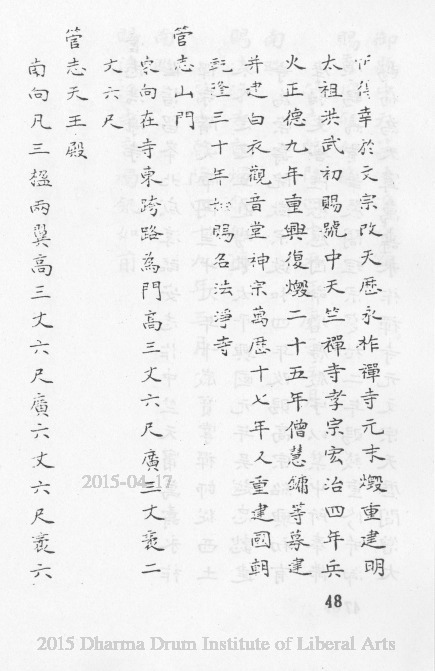 幸於文宗改天歷永祚禪寺元末燬重建明
太祖洪武初賜號中天竺禪寺孝宗宏治四年兵
火正德九年重興復燬二十五年僧慧鏞等募建
并建白衣觀音堂神宗萬歷十七年又重建國朝
乾隆三十年賜名法淨寺
管志山門
東向在寺東跨路為門高三丈六尺廣三丈袤二
丈六尺
管志天王殿
南向凡三楹兩翼高三丈六尺廣六丈六尺袤六
2015-04-17
48
2015 Dharma Drum Institute of Liberal Arts